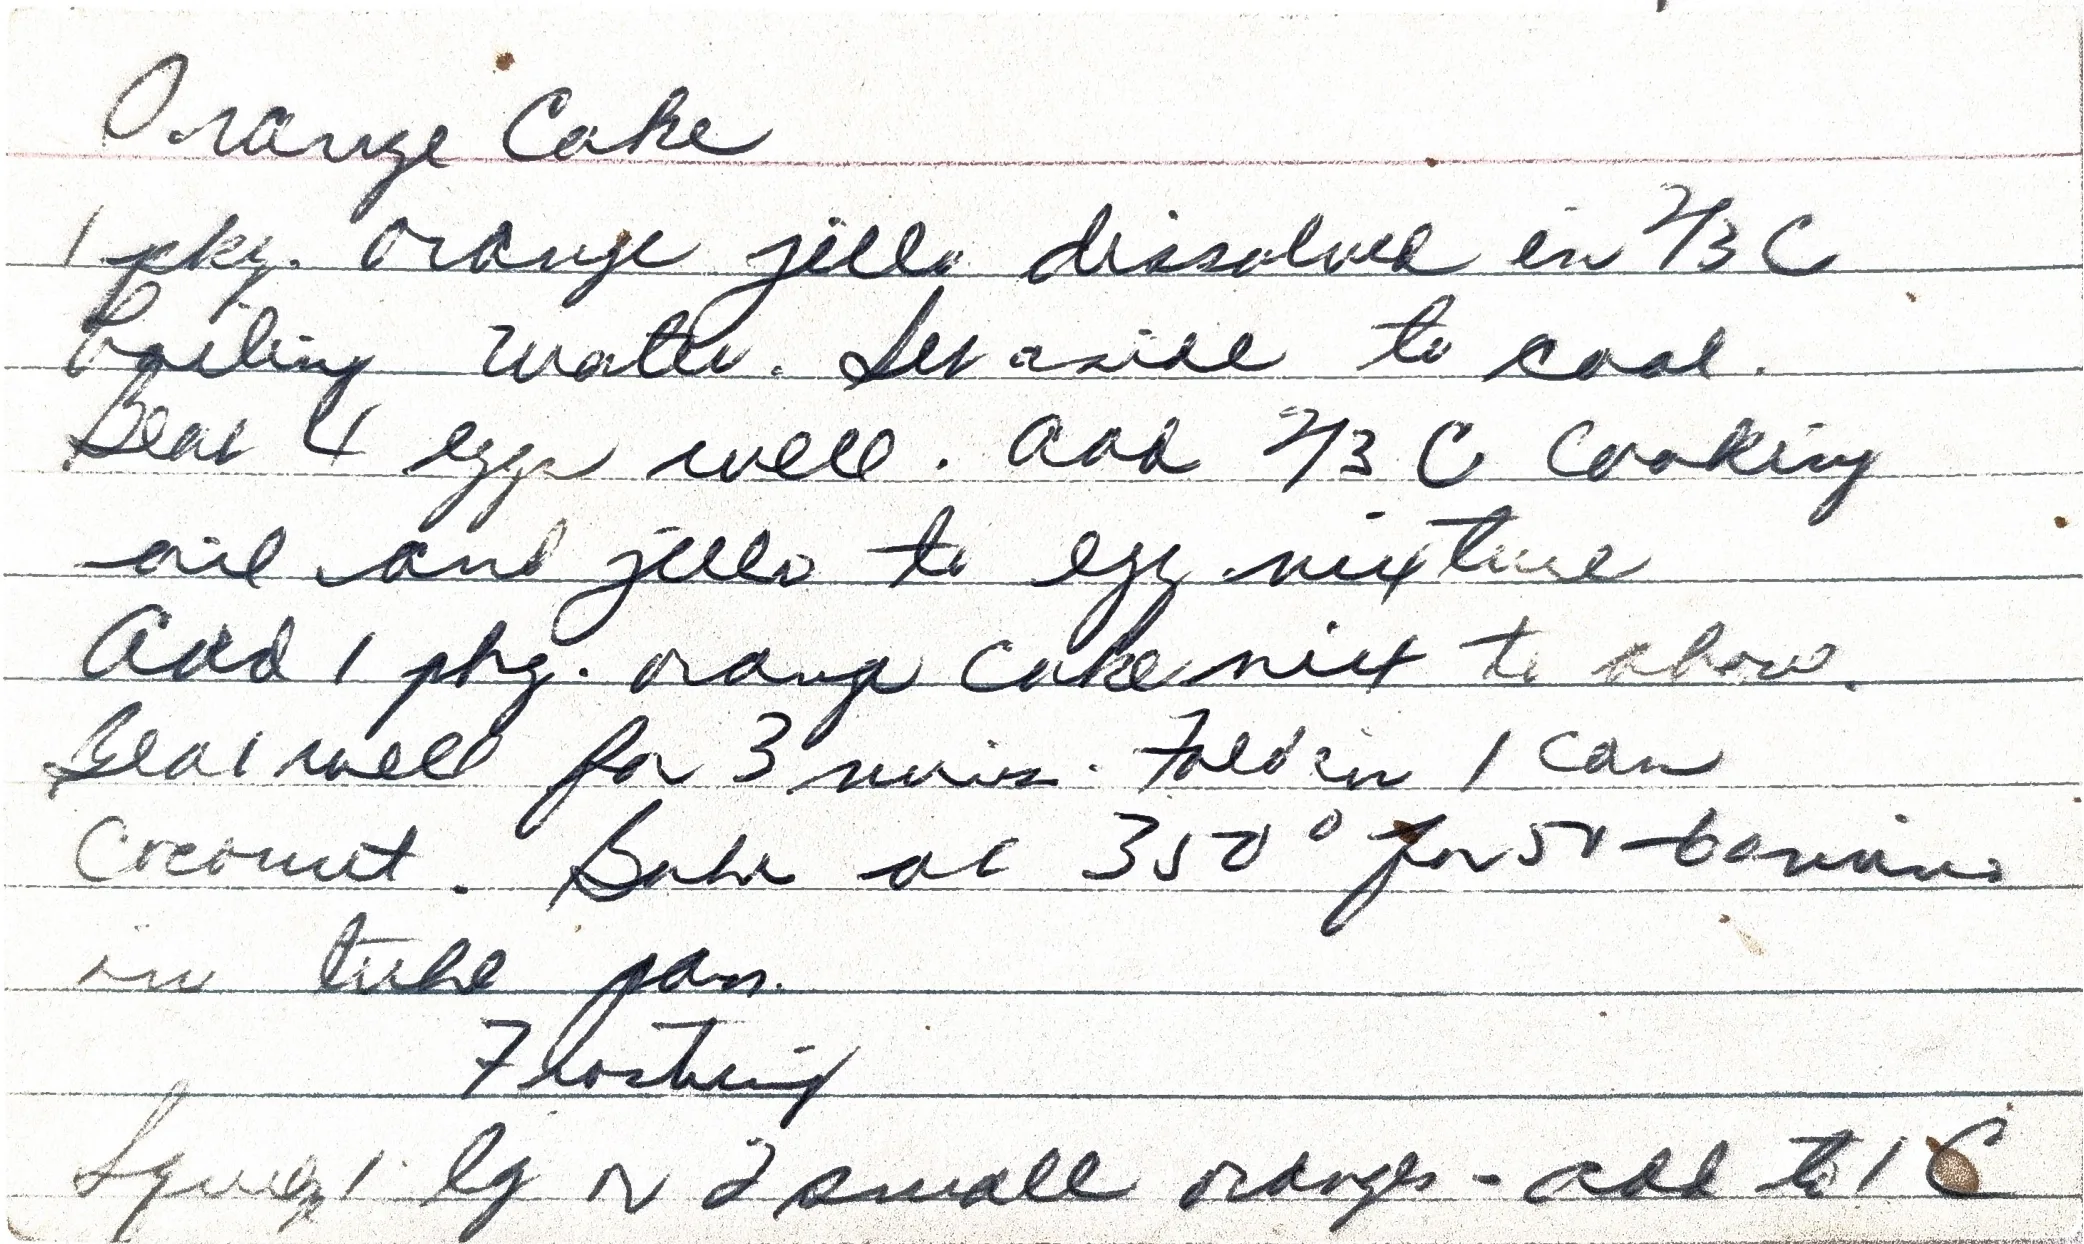 Orange Cake
1 pkg. orange jello dissolved in 2/3 C
boiling water. Set aside to cool.
Beat 4 eggs well. Add 2/3 C Cooking
oil and jello to egg mixture
Add 1 pkg. orange cake mix to above.
Beat well for 3 mins. Fold in 1 can
Coconut. Bake at 350° for 50-60 mins
in tube pan.
Frosting
Squeeze 1 lg or 2 small oranges - add to 1 C